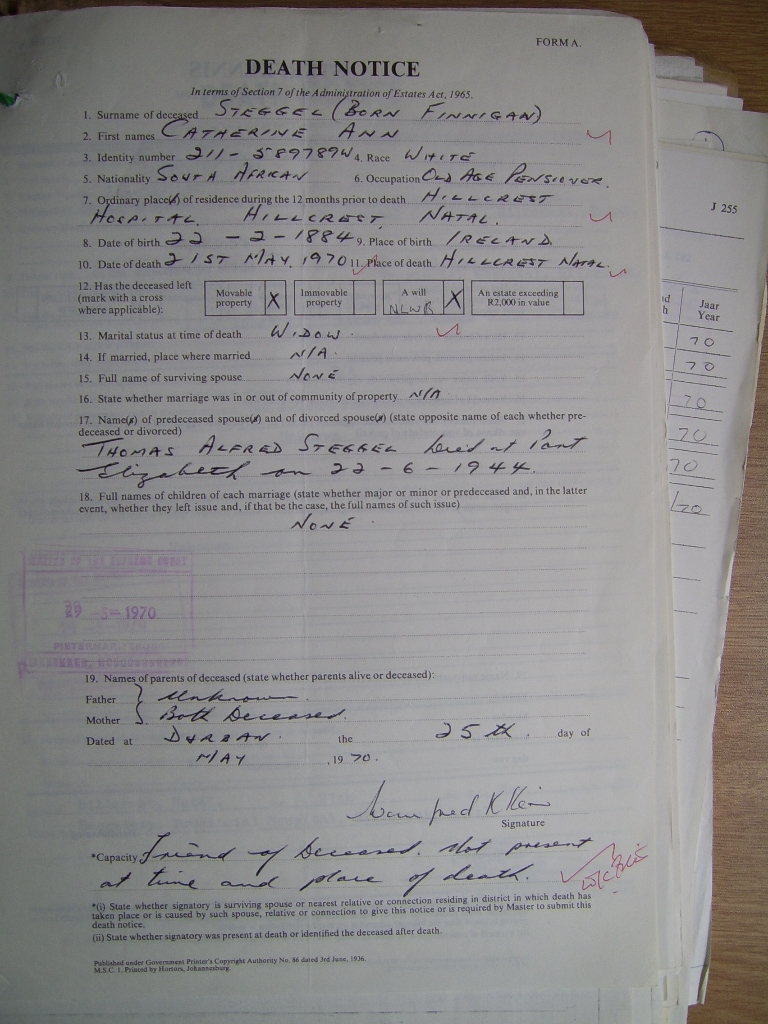 FORM A.
DEATH NOTICE
In terms of Section 7 of the Administration of Estates Act, 1965.
1. Surname of deceased STEGGEL (BORN FINNIGAN)
2. First names CATHERINE ANN
3. Identity number 211-589789W 4. Race WHITE
5. Nationality SOUTH AFRICAN 6. Occupation OLD AGE PENSIONER.
7. Ordinary place(s) of residence during the 12 months prior to death HILLCREST
HOSPITAL. HILLCREST, NATAL.
8. Date of birth 22-2-1884 9. Place of birth IRELAND
10. Date of death 21ST MAY, 1970 11. Place of death HILLCREST NATAL.
12. Has the deceased left (mark with a cross where applicable): Movable property X Immovable property A will NLWR X An estate exceeding R2,000 in value
13. Marital status at time of death WIDOW.
14. If married, place where married N/A.
15. Full name of surviving spouse NONE
16. State whether marriage was in or out of community of property N/A
17. Name(s) of predeceased spouse(s) and of divorced spouse(s) (state opposite name of each whether pre-
deceased or divorced)
THOMAS ALFRED STEGGEL Died at Port
Elizabeth on 22-6-1944.
18. Full names of children of each marriage (state whether major or minor or predeceased and, in the latter
event, whether they left issue and, if that be the case, the full names of such issue)
NONE
MASTER OF THE SUPREME COURT
29 -5- 1970
19. Names of parents of deceased (state whether parents alive or deceased):
Father } Unknown
Mother } Both Deceased.
Dated at DURBAN. the 25th. day of
MAY , 1970.
Signature
*Capacity Friend of Deceased. Not present
at time and place of death.
*(i) State whether signatory is surviving spouse or nearest relative or connection residing in district in which death has
taken place or is caused by such spouse, relative or connection to give this notice or is required by Master to submit this
death notice.
(ii) State whether signatory was present at death or identified the deceased after death.
Published under Government Printer's Copyright Authority No. 86 dated 3rd June, 1936.
M.S.C. 1. Printed by Hortors, Johannesburg.
J 255
Jaar
Year
70
70
70
70
70
70